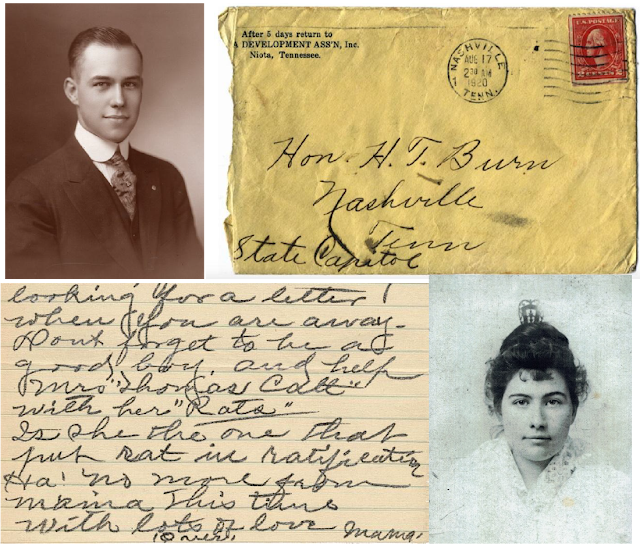 After 5 days return to
A DEVELOPMENT ASS'N, Inc.
Niota, Tennessee.
NASHVILLE
TENN.
AUG 17
2 30 AM
1920
U.S. POSTAGE
2 CENTS 2
Hon. H. T. Burn
Nashville
Tenn
State Capitol
looking for a letter
when you are away.
Dont forget to be a
good boy and help
Mrs "Thomas Catt"
with her "Rats"
Is she the one that
put rat in ratification
Ha! No more from
mama this time
With lots of love Mama.
(Over)